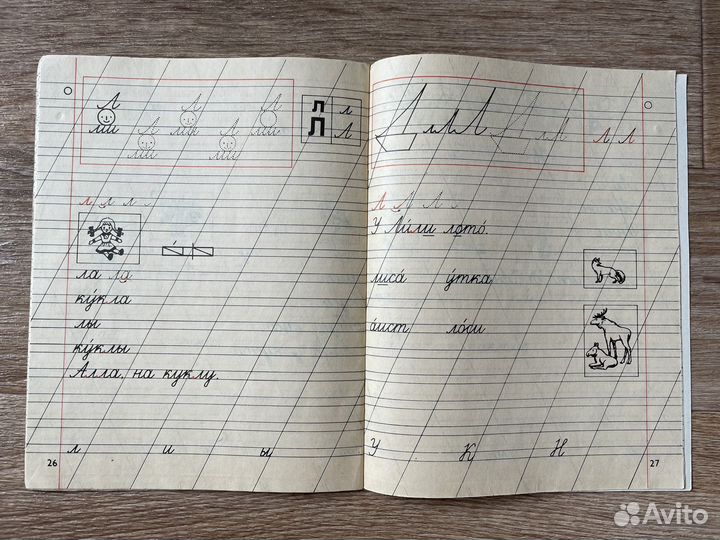 Л Л Л
ли ли ли
Л Л
ли ли
л л
Л Л
л л л
ла ла
ку́кла
лы
ку́клы
Алла, на куклу.
л и ы
26
Л л Л л
Л Л
Л Л Л
У Ли́ли лото́.
лиса́ у́тка
а́ист ло́си
У К Н
27
Avito